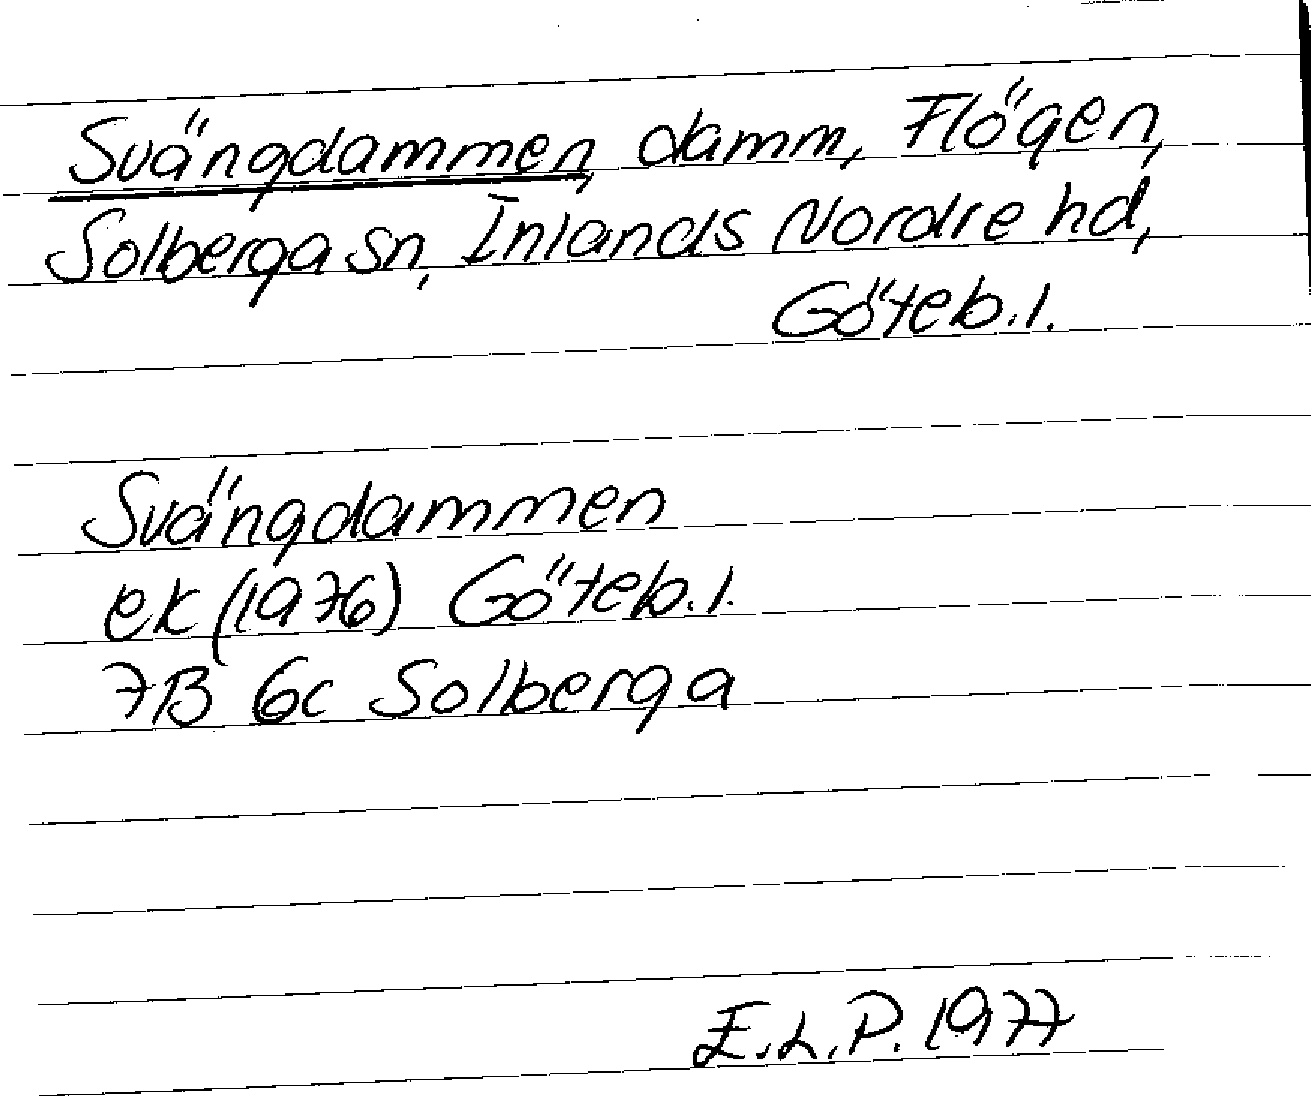 Svängdammen, damm, Flögen,
Solberga sn, Inlands Nordre hd,
Göteb.l.
Svängdammen
ek (1976) Göteb.l.
7B 6c Solberga
E.L.P. 1977